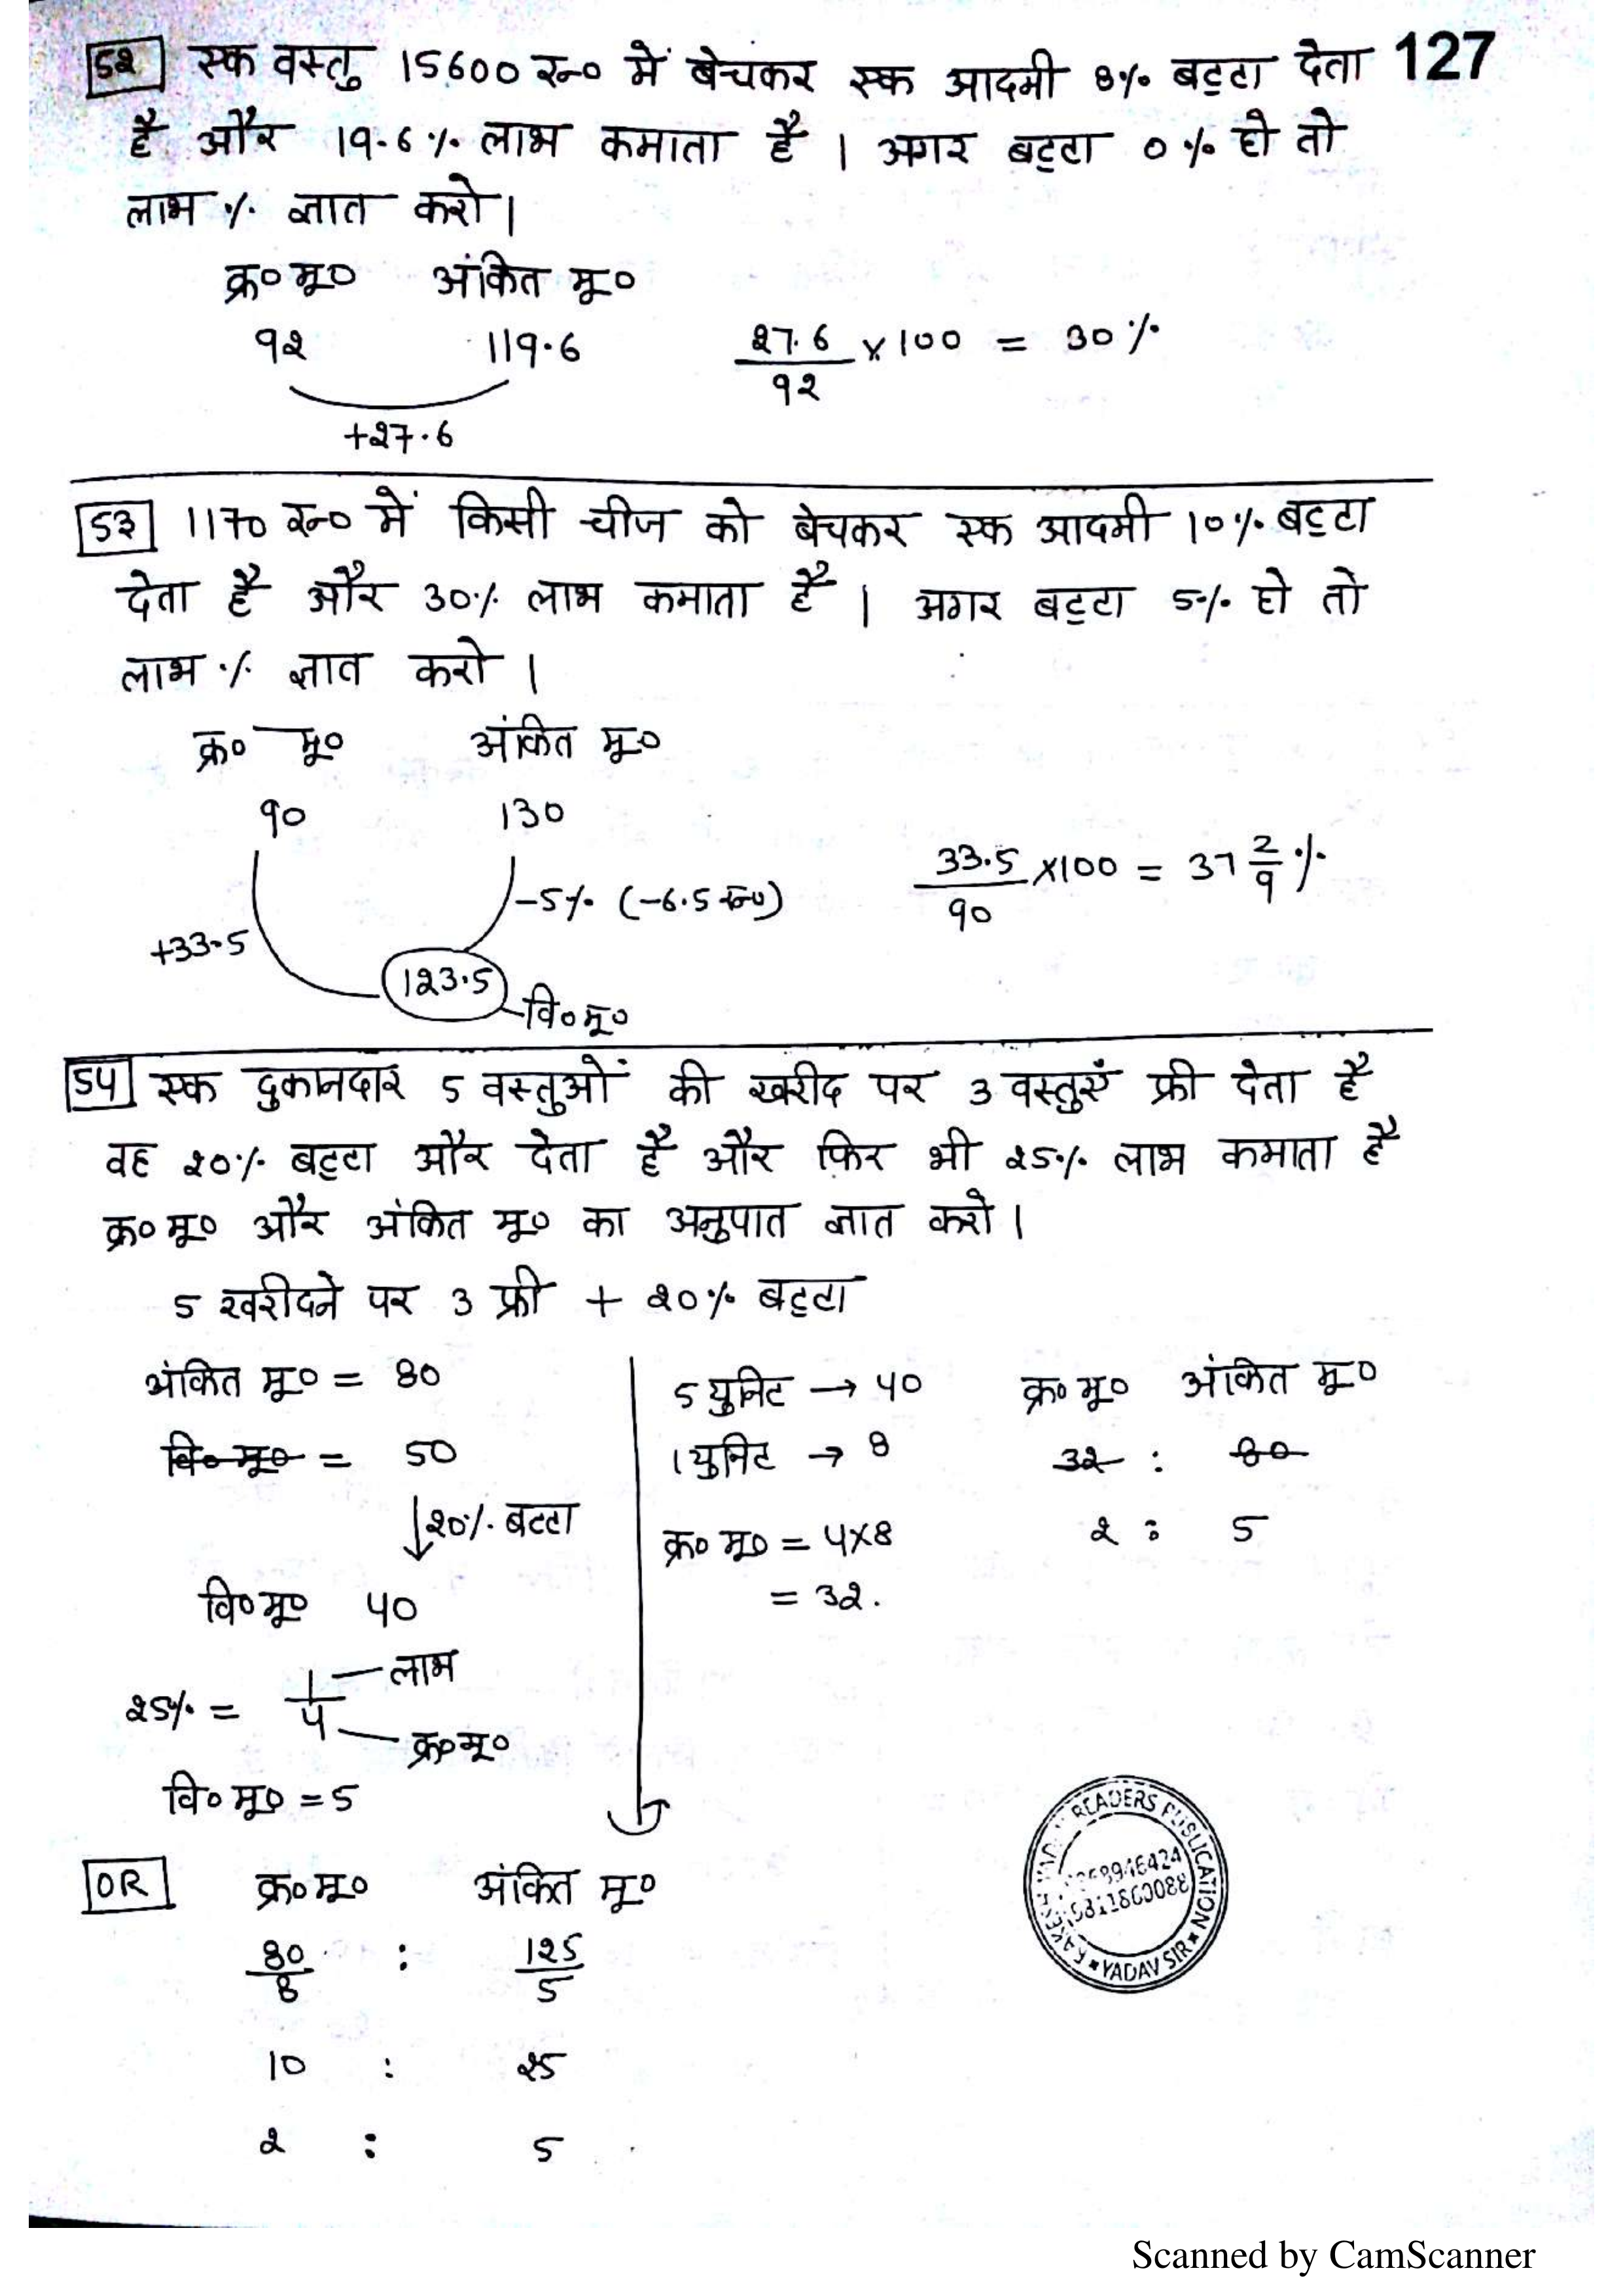 127
52 एक वस्तु 15600 रु० में बेचकर एक आदमी 8% बट्टा देता
है और 19.6% लाभ कमाता है । अगर बट्टा 0% हो तो
लाभ % ज्ञात करो।
क्र० मू० अंकित मू०
92 119.6 27.6/92 × 100 = 30%
+27.6
53 1170 रु० में किसी चीज को बेचकर एक आदमी 10% बट्टा
देता है और 30% लाभ कमाता है । अगर बट्टा 5% हो तो
लाभ % ज्ञात करो ।
क्र० मू० अंकित मू०
90 130
33.5/90 ×100 = 37 2/9 %
-5% (-6.5 रु०)
+33.5
123.5
वि० मू०
54 एक दुकानदार 5 वस्तुओं की खरीद पर 3 वस्तुएँ फ्री देता है
वह 20% बट्टा और देता है और फिर भी 25% लाभ कमाता है
क्र० मू० और अंकित मू० का अनुपात ज्ञात करो।
5 खरीदने पर 3 फ्री + 20% बट्टा
अंकित मू० = 80
वि० मू० = 50
↓20% बट्टा
वि० मू० 40
25% = 1/4 लाभ
क्र० मू०
वि० मू० = 5
5 युनिट → 40
1 युनिट → 8
क्र० मू० = 4×8
= 32.
क्र० मू० अंकित मू०
32 : 80
2 : 5
OR क्र० मू० अंकित मू०
80/8 : 125/5
10 : 25
2 : 5
READERS PUBLICATION
YADAV SIR
Scanned by CamScanner